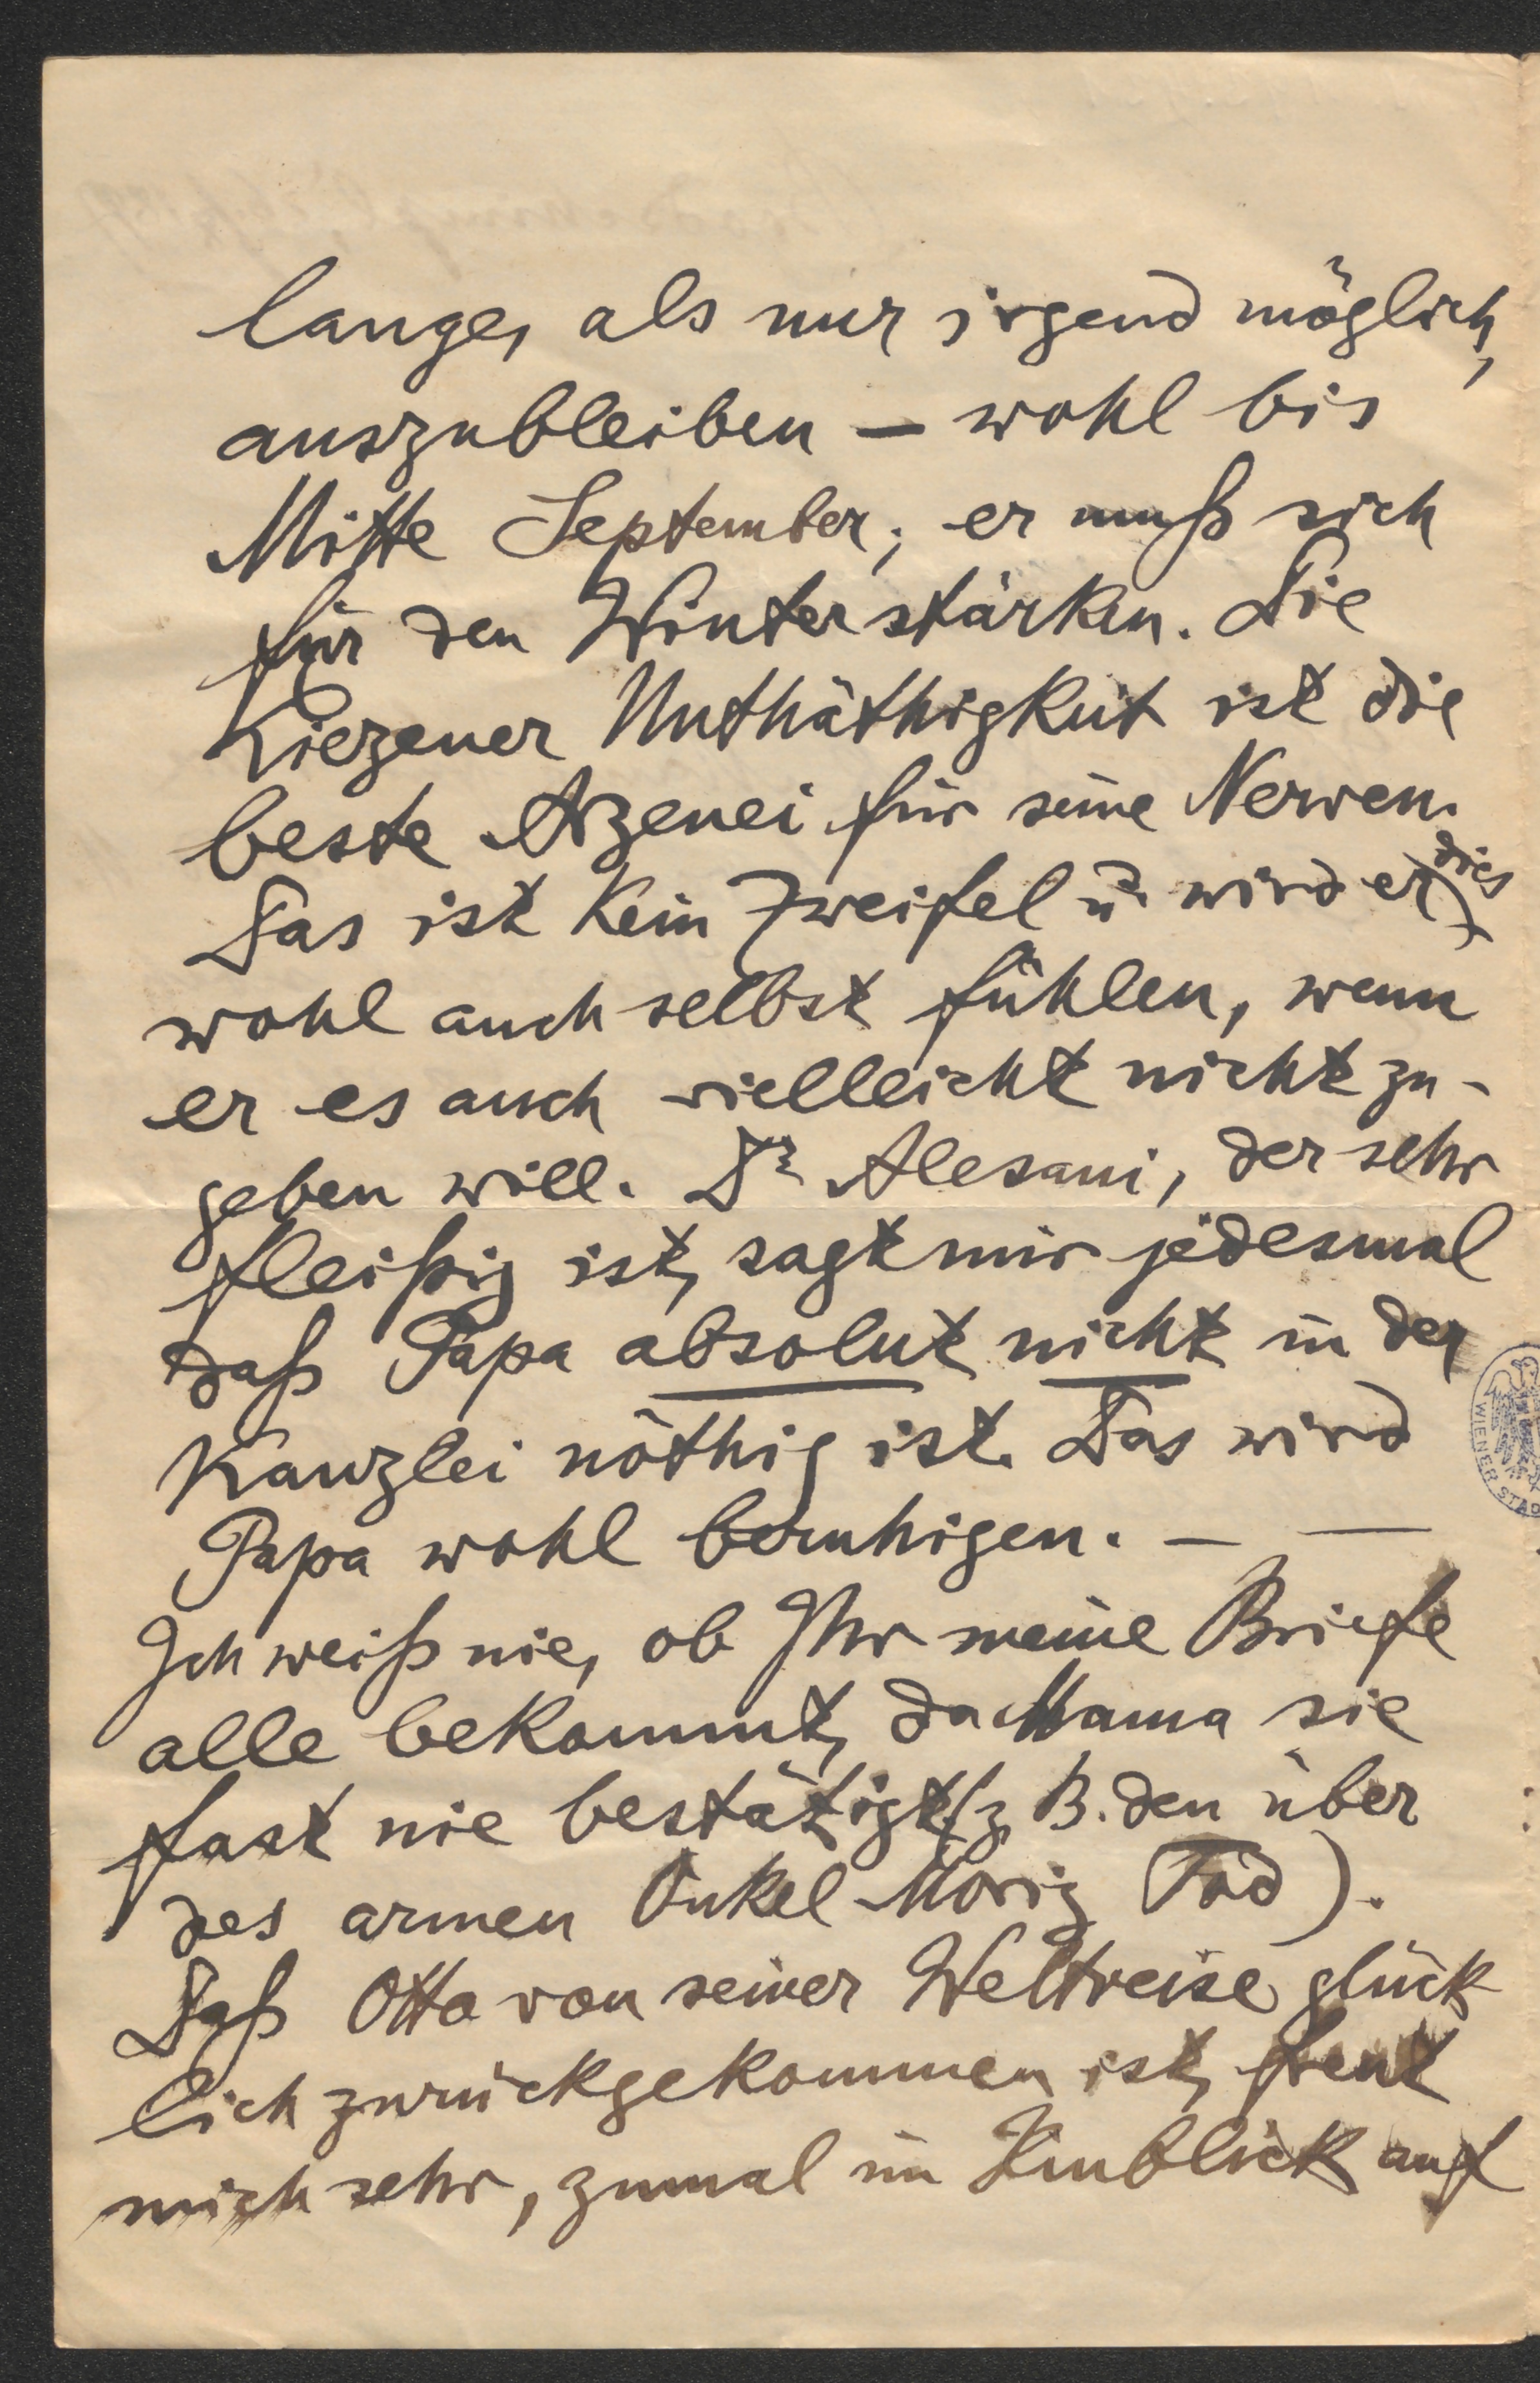 lange, als nur irgend möglich,
auszubleiben – wohl bis
Mitte September; er muß sich
für den Winter stärken. Die
Liezener Unthäthigkeit ist die
beste Arzenei für seine Nerven.
Das ist kein Zweifel u. wird er dies
wohl auch selbst fühlen, wenn
er es auch vielleicht nicht zu-
geben will. Dr Alesani, der sehr
fleißig ist, sagt mir jedesmal
daß Papa absolut nicht in der
Kanzlei nöthig ist. Das wird
Papa wohl beruhigen. – —
Ich weiß nie, ob Ihr meine Briefe
alle bekommt, da Mama sie
fast nie bestätigt (z. B. den über
des armen Onkel Moriz Tod).
Daß Otto von seiner Weltreise glück-
lich zurückgekommen ist, freut
mich sehr, zumal im Hinblick auf
WIENER STAD